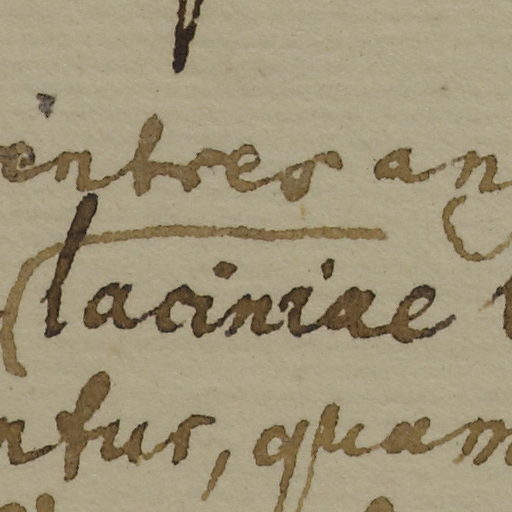 entres an
laciniae
ntur, quam